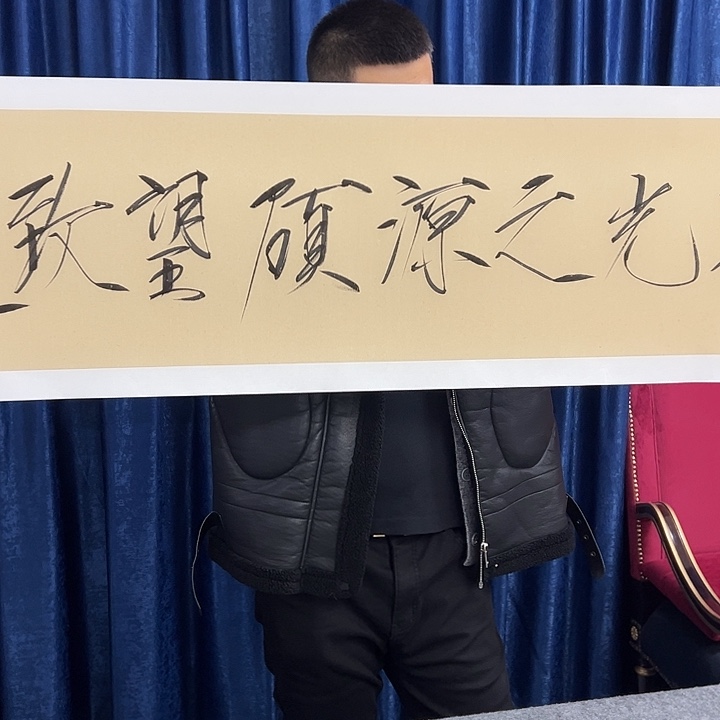 致望碩源之光